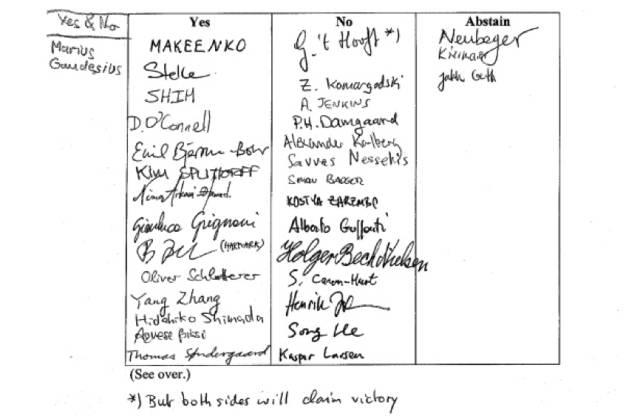 Yes & No
Marius
Gaudesius
Yes
MAKEENKO
Stelle
SHIH
D. O'Connell
Emil Bjerrum-Bohr
KIM SPLITTORFF
Nima Arkani-Hamed
Gianluca Grignani
(HARMARK)
Oliver Schlotterer
Yang Zhang
Hidehiko Shimada
Thomas Søndergaard
No
G. 't Hooft *)
Z. Komargodski
A. JENKINS
P.H. Damgaard
Alexander Karlberg
Savvas Nesseris
Simon BADGER
KOSTYA ZAREMBO
Alberto Guffanti
Holger Bech Nielsen
S. Caron-Huot
Henrik
Song He
Kasper Larsen
Abstain
Neuberger
(See over.)
*) But both sides will claim victory